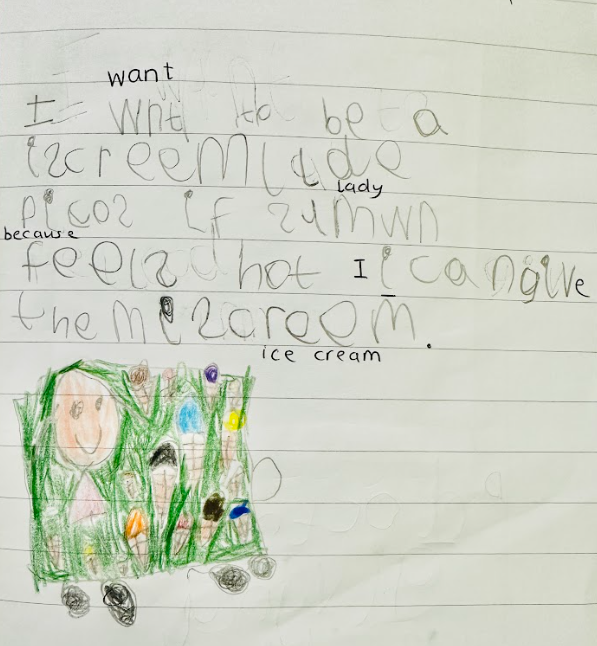 want
I wnt to be a
iscreem lade
lady
picos if sumwn
because
feels hot I i can give
them iscreem.
ice cream